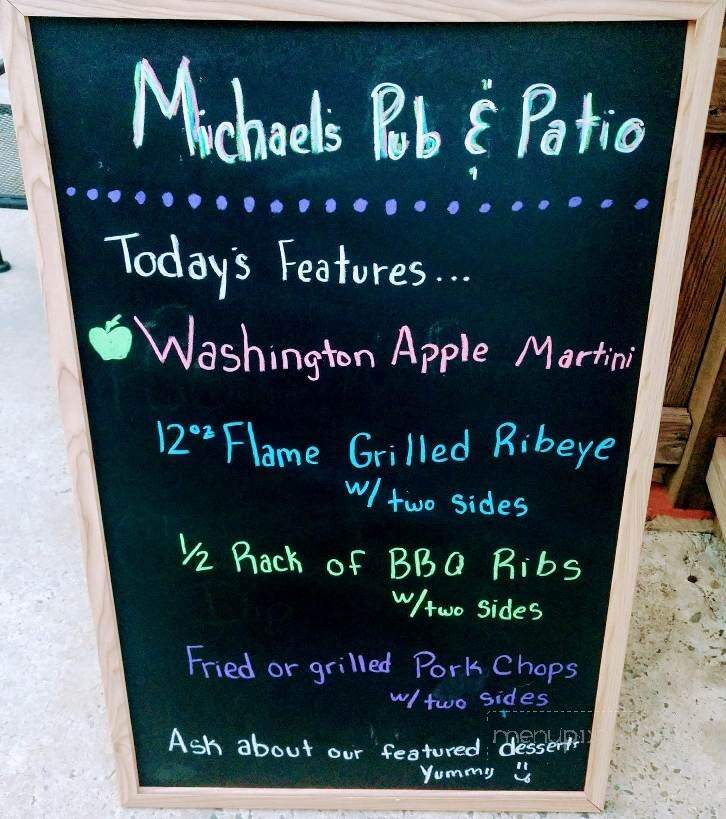 Michael's Pub & Patio
Today's Features...
Washington Apple Martini
12oz Flame Grilled Ribeye
w/ two sides
1/2 Rack of BBQ Ribs
w/two sides
Fried or grilled Pork Chops
w/ two sides
menupix
Ask about our featured dessert
Yummy